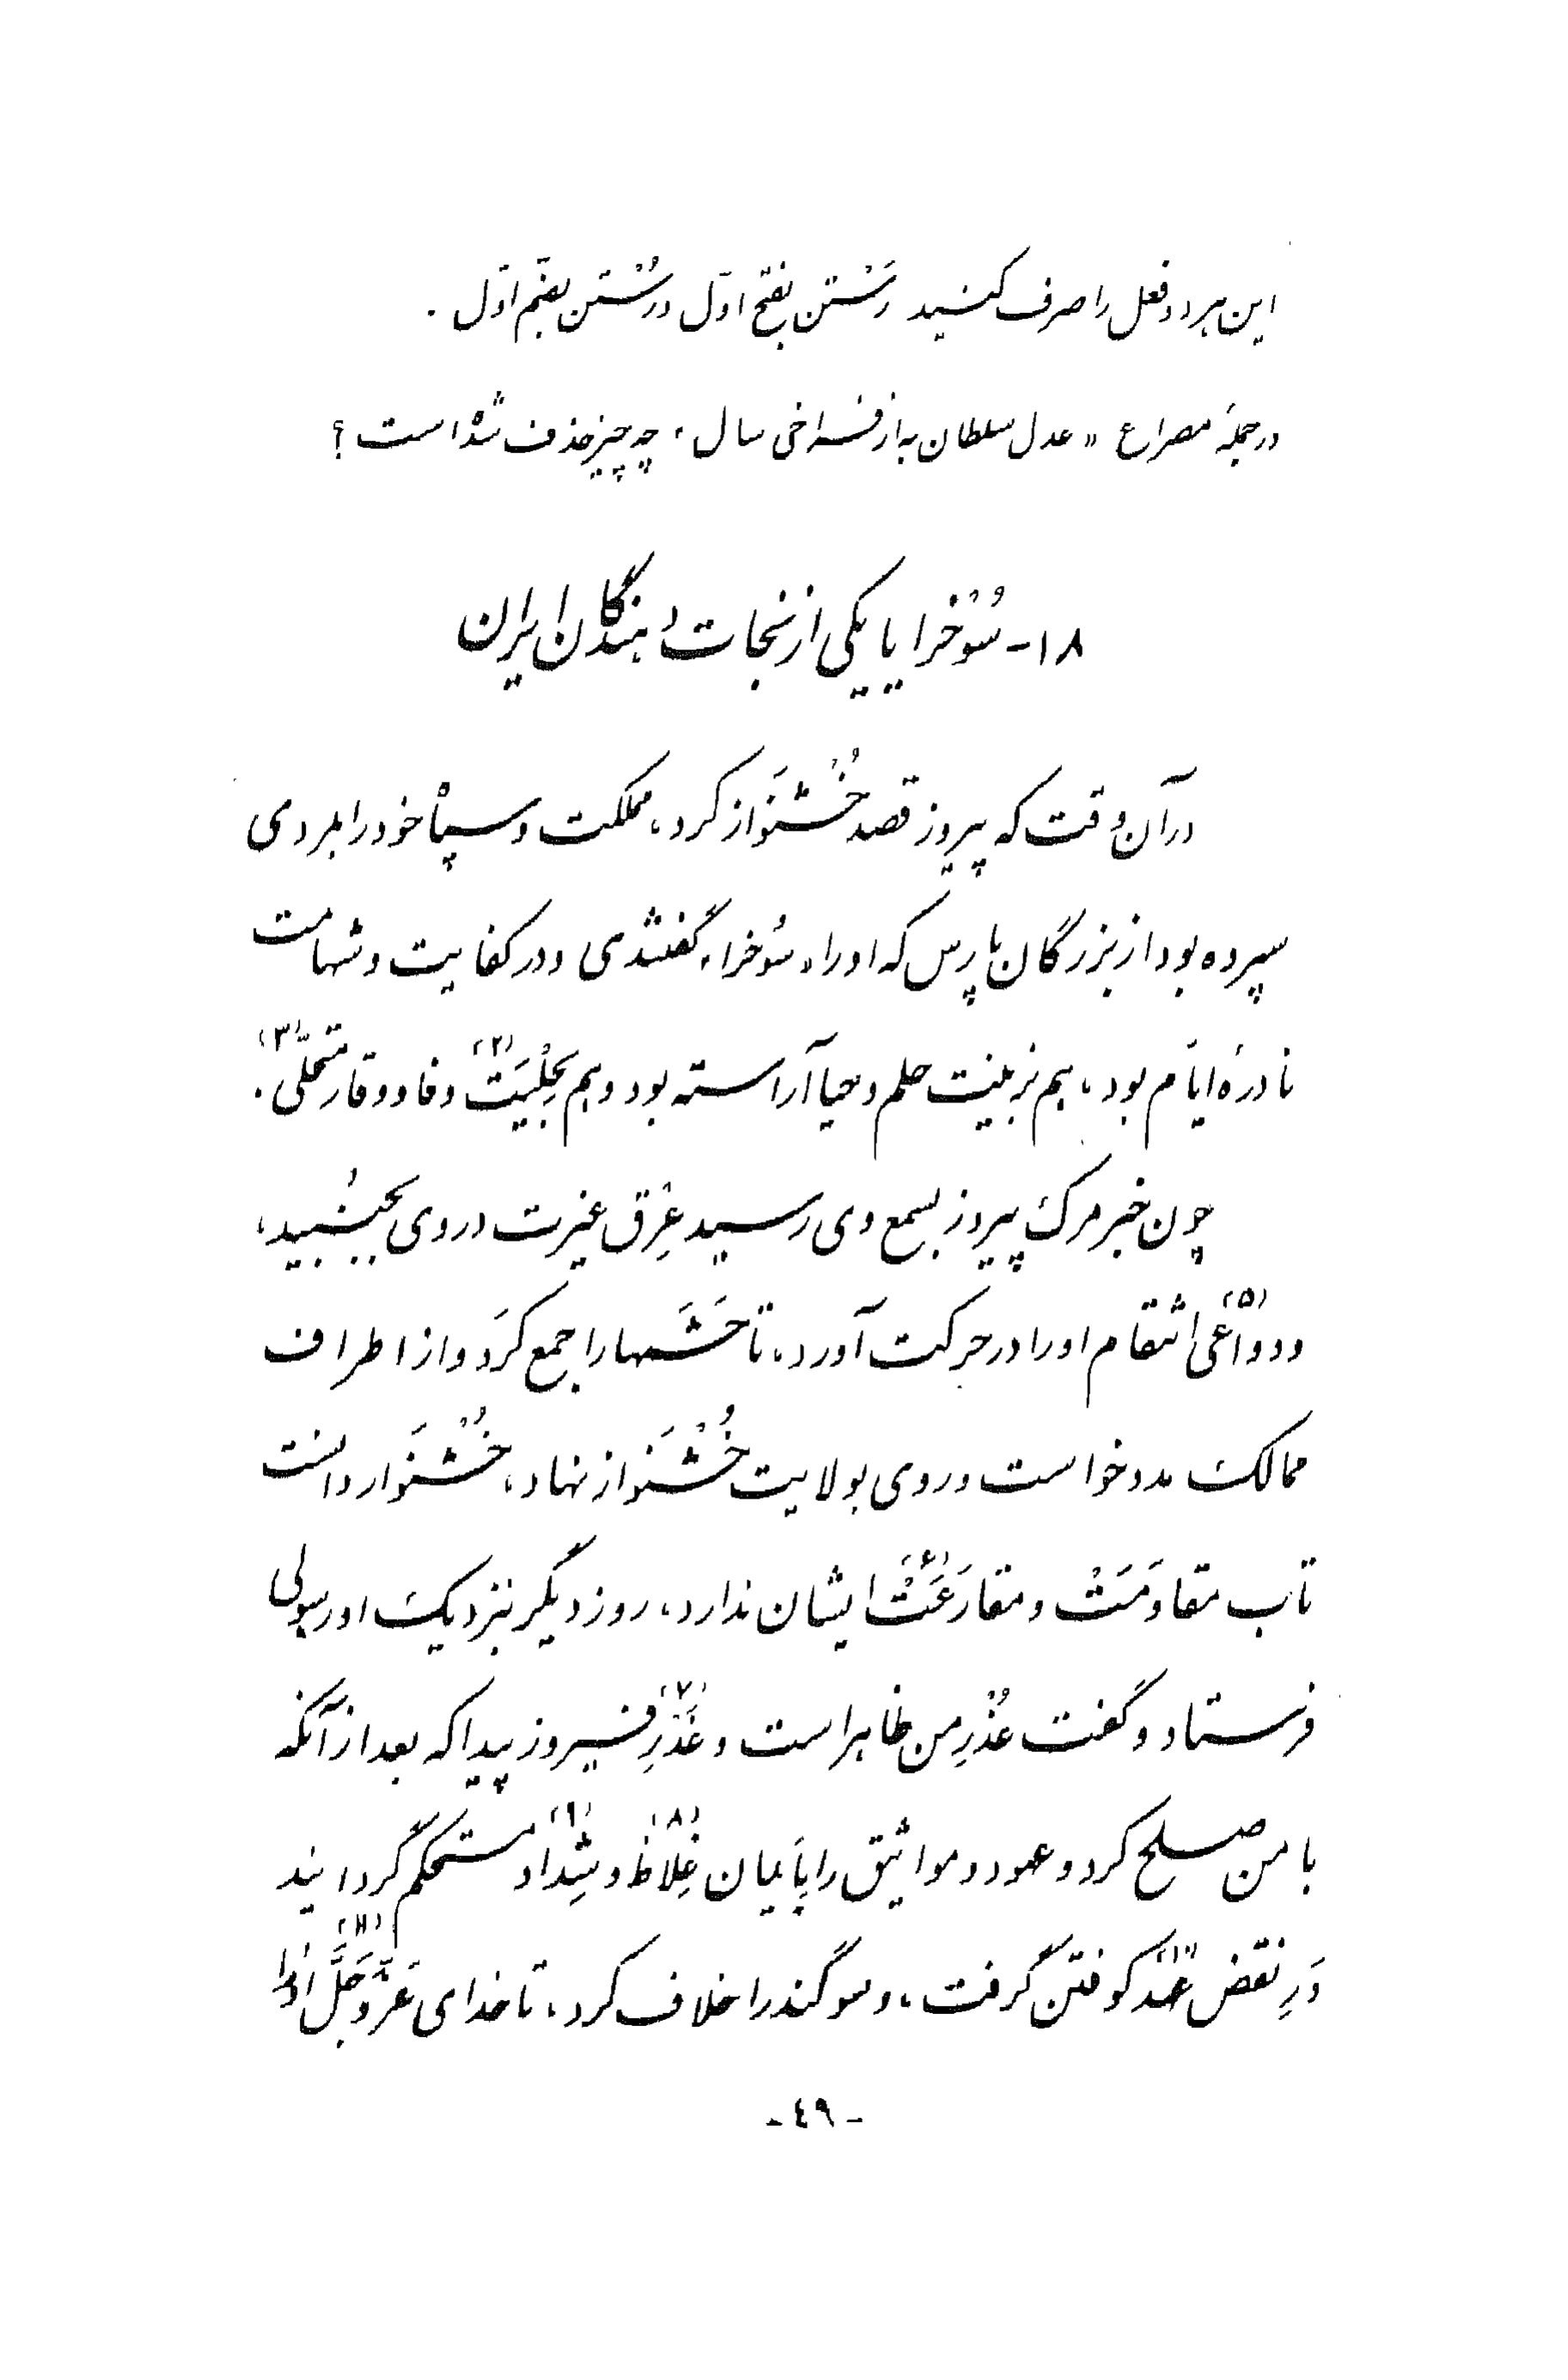 این هر دو فعل را صرف کنید رَسْتن بفتح اوّل و رُسْتن بضّم اوّل .
در جملهٔ مصراع « عدل سلطان به از فراخی سال » چه چیز حذف شده است ؟
۱۸- سُوْخرا یا یکی از نجات دهندگان ایران
در آن وقت که پیروز قصد خُشْنَواز کرد، مملکت و سپاه خود را بمردی
سپرده بود از بزرگان پارس که او را «سُوخرا» گفتندی و در کفایت و شهامت
نادرهٔ ایّام بود، هم بزینت حلم و حیا آراسته بود و هم بِحِلْیَتْ (۲) وفا و وقار متحلّی (۳) .
چون خبر مرگ پیروز بسمع وی رسید عِرْق غیرت در وی بجنبُید،
و دواعی (۵) انتقام او را در حرکت آورد، تا حَشَمها را جمع کرد و از اطراف
ممالک مدد خواست و روی بولایت خُشْنَواز نهاد، خُشْنَواز دانست
تاب مقاوَمَتْ و مقارَعَتْ (۶) ایشان ندارد، روز دیگر بنزدیک او رسولی
فرستاد و گفت عُذْرِ من ظاهر است و غَدْرِ (۷) فیروز پیدا که بعد از آنکه
با من صلح کرد و عهود و مواثیق را بِاَیمان غِلاظ (۸) و شِداد (۹) مستحکم گردانید
دَرِ نقض عهد (۱۰) کوفتن گرفت، و سوگند را خلاف کرد، تا خدای عَزَّوَجَلَّ (۱۱) او را
- ٤٩ -